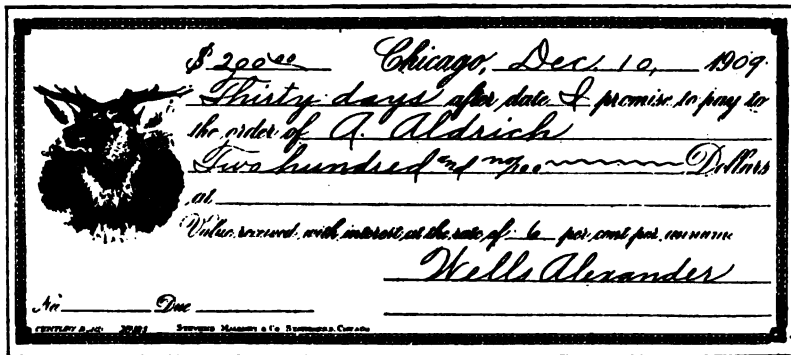 $ 200 00 Chicago, Dec. 10, 1909.
Thirty days after date I promise to pay to
the order of A. Aldrich
Two hundred and no/00 Dollars
at
Value received with interest at the rate of 6 per cent per annum
Wells Alexander
No. Due
STEVENS, MALONEY & CO. CHICAGO